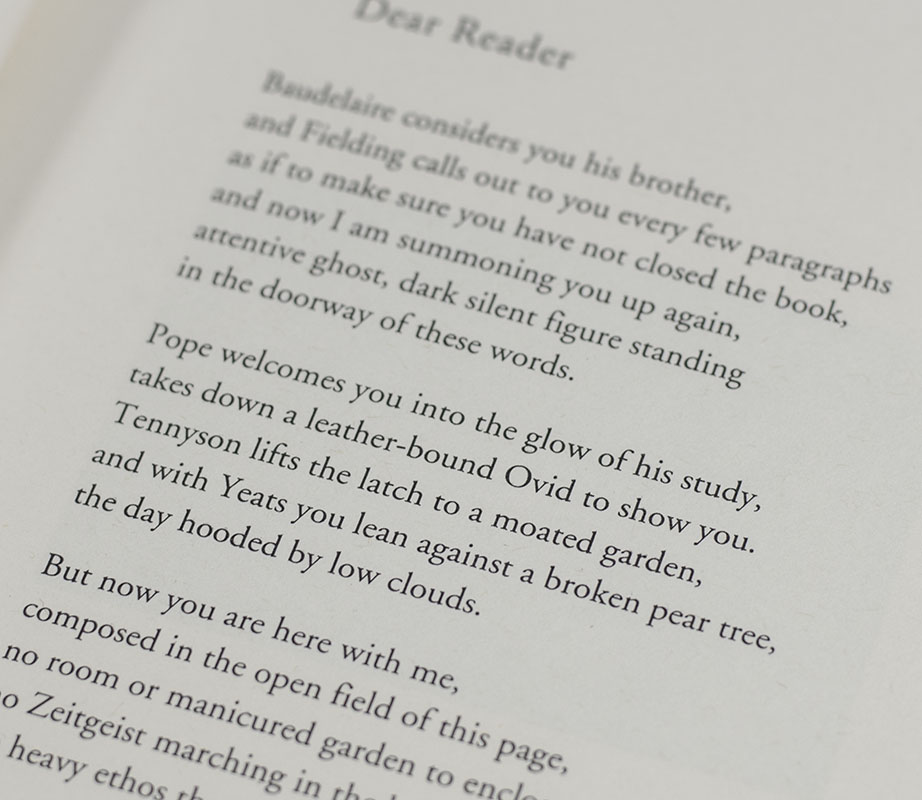 Dear Reader
Baudelaire considers you his brother,
and Fielding calls out to you every few paragraphs
as if to make sure you have not closed the book,
and now I am summoning you up again,
attentive ghost, dark silent figure standing
in the doorway of these words.
Pope welcomes you into the glow of his study,
takes down a leather-bound Ovid to show you.
Tennyson lifts the latch to a moated garden,
and with Yeats you lean against a broken pear tree,
the day hooded by low clouds.
But now you are here with me,
composed in the open field of this page,
no room or manicured garden to
Zeitgeist marching in the
heavy ethos